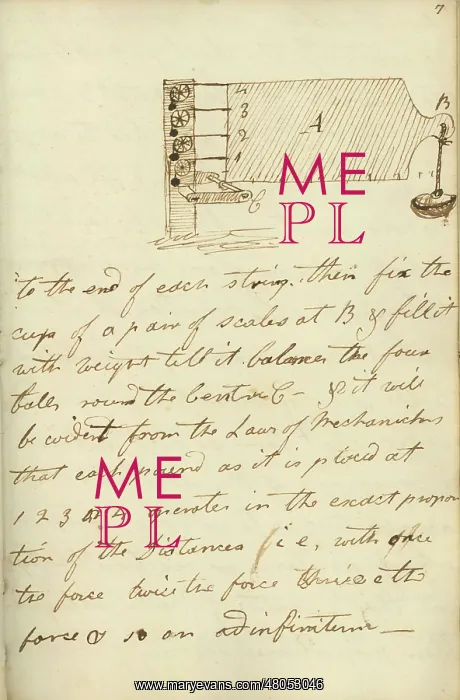 7
4
3
2
1
A
B
C
to the end of each string. then fix the
cup of a pair of scales at B & fill it
with weight till it balances the four
balls round the Centre C - & it will
be evident from the Laws of Mechanicks
that each pound as it is placed at
1 2 3 or 4 operates in the exact propor
tion of the Distances i e, with once
the force twice the force thrice the
force & so on ad infinitum —
ME
PL
ME
PL
www.maryevans.com/48053046